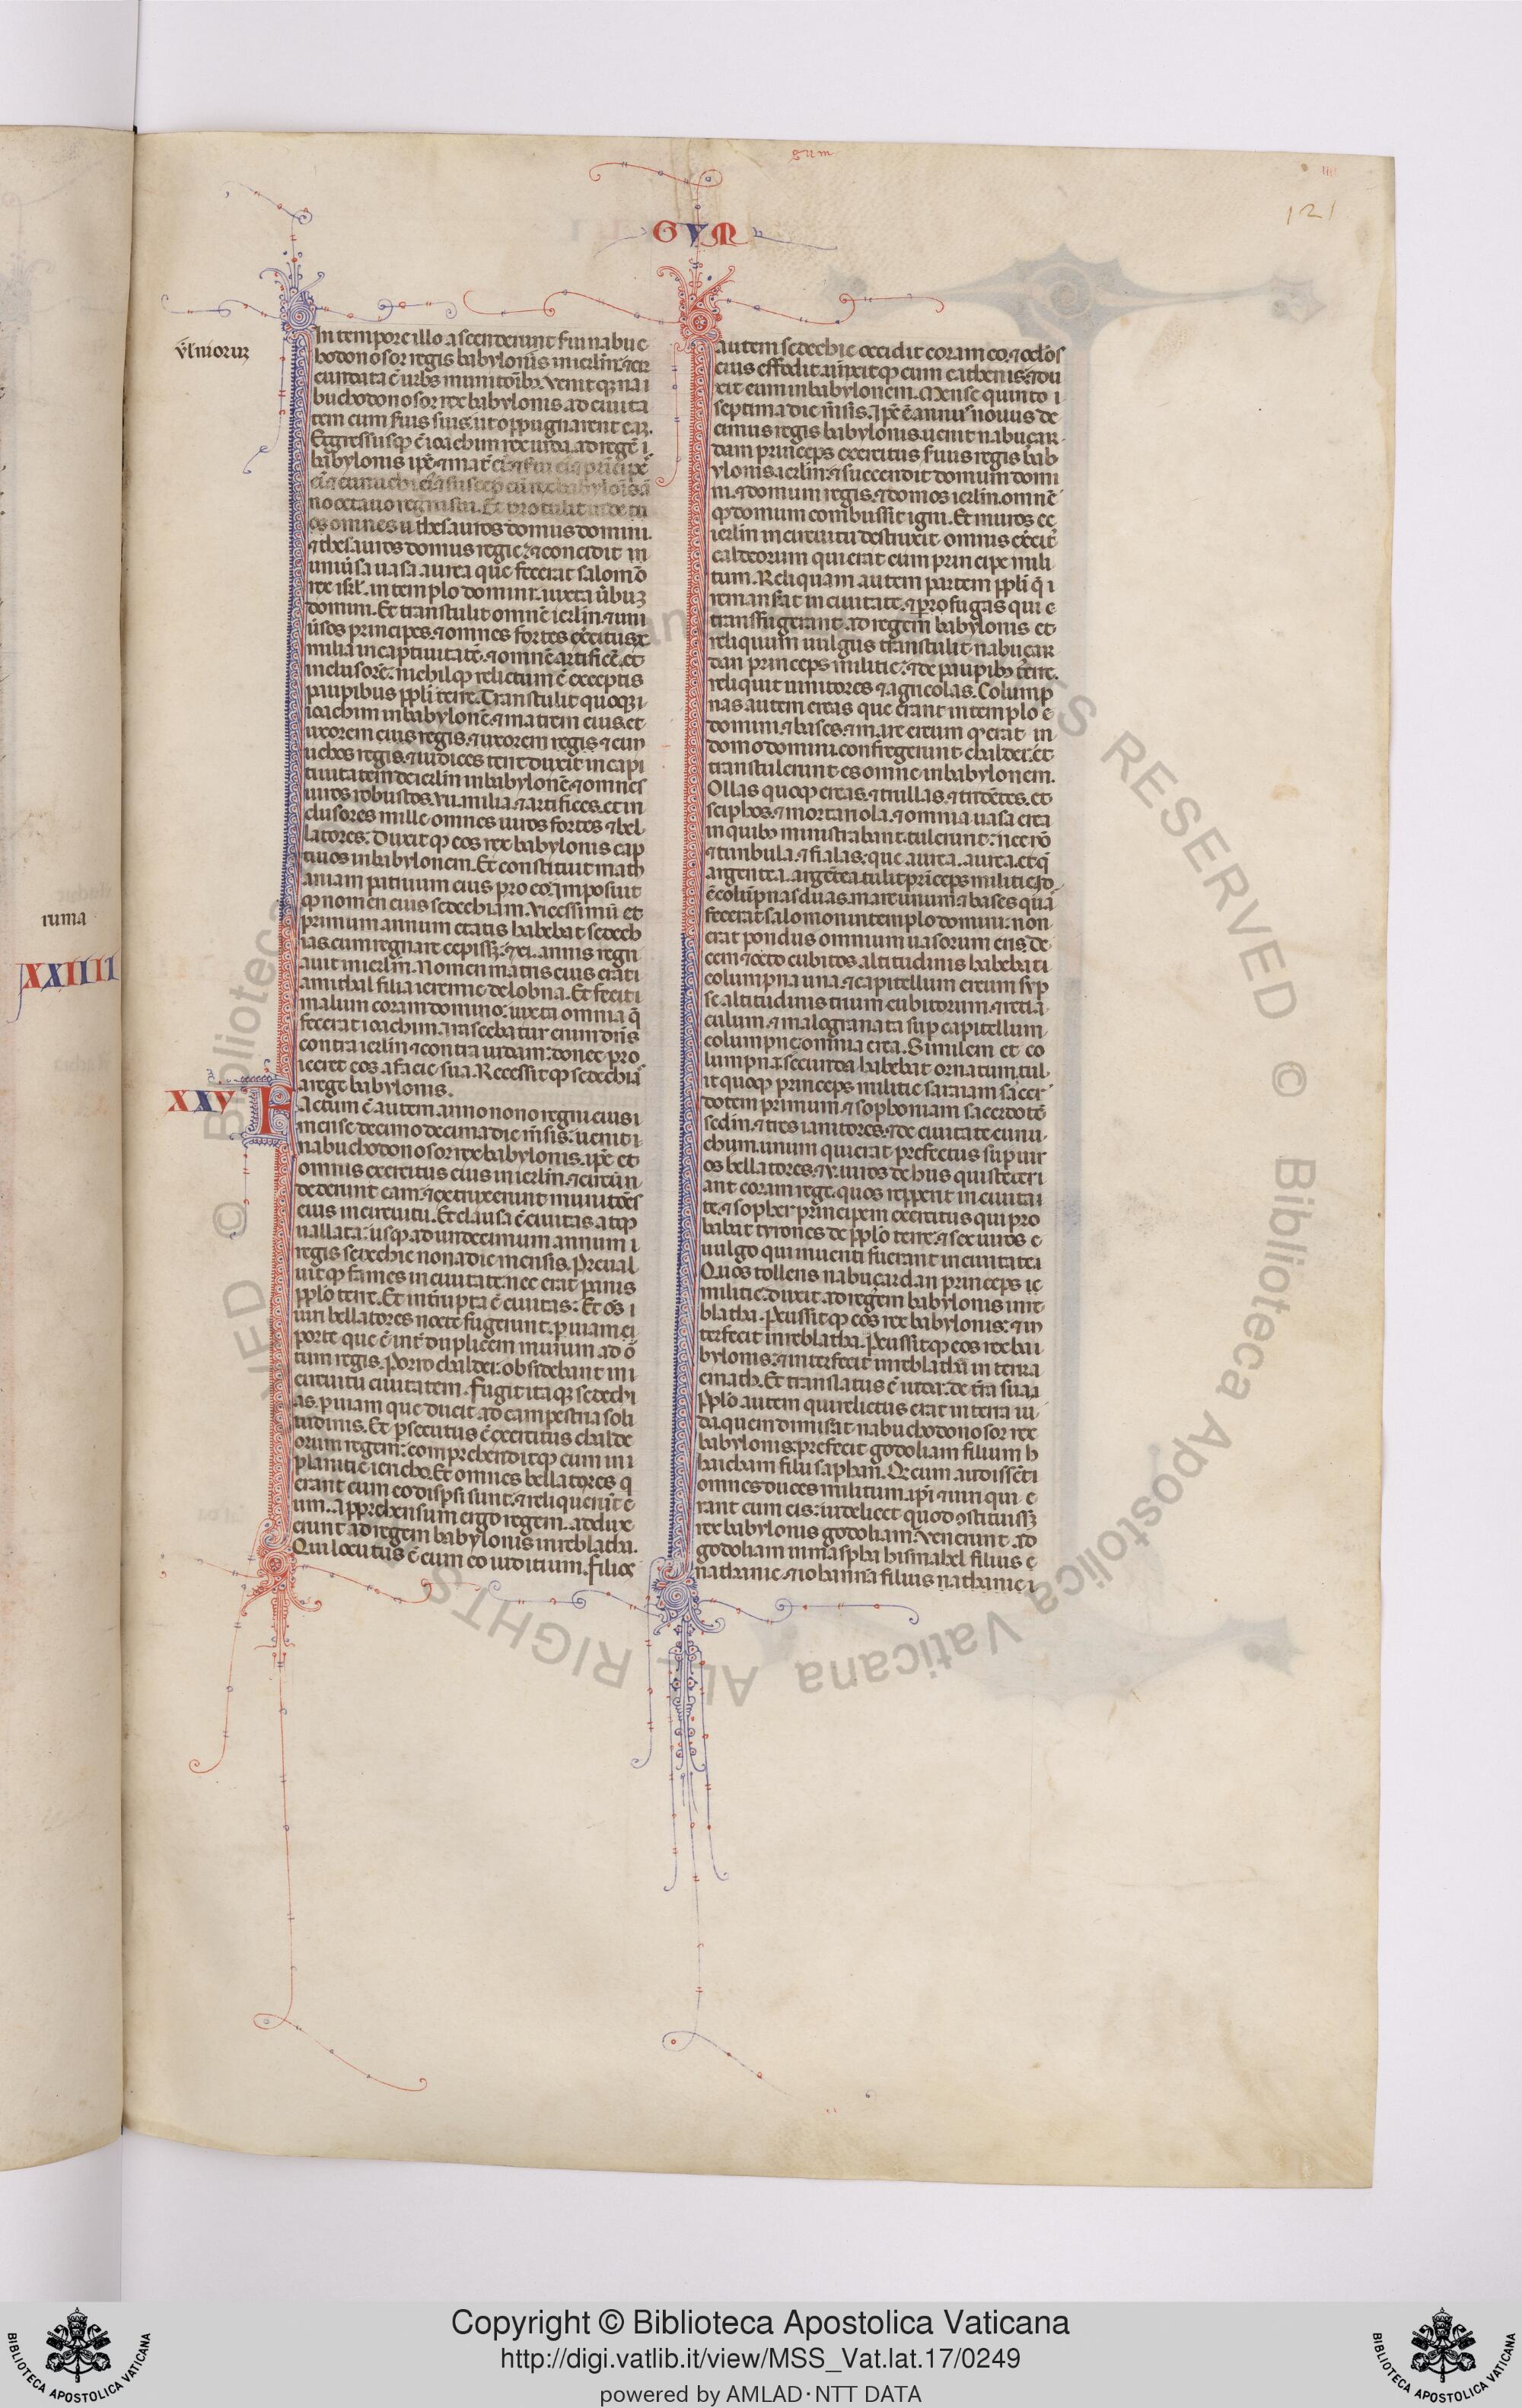 gum
121
GVM
v̄l'morum
In tempore illo ascenderunt fui nabuc
hodonosor regis babylonis in ierlm̄. ⁊ cir
cundata ē urbs munitōib;. Venitq; nai
buchodonosor rex babylonis ad ciuita
tem cum fuis suis. ut oppugnarent eaz.
Egressusq; ē ioachim rex iuda. ad regē i
babylonis ipē ⁊ mat̄ ei
no octauo regni sui. Et protulit inde in
os omnes u thesauros domus domini.
⁊ thesauros domus regie: ⁊ concidit in
uniūsa uasa aurea que fecerat salomō
rex isrl̄. in templo domini. iuxta ūbuz
domini. Et transtulit omnē ierlm̄. ⁊ uni
ūsos principes. ⁊ omnes fortes exc̄itus. x
milia in captiuitatē. ⁊ omnē artificē. et
inclusorē. nichilq; relictum ē exceptis
paupibus ppli terre. Transtulit quoq; i
ioachim in babylonē. ⁊ matrem eius. et
uxorem eius regis. ⁊ uxorem regis ⁊ eun
uchos regis. ⁊ iudices terre duxit in capi
tiuitatem de ierlm̄ in babylonē. ⁊ omnes
uiros robustos. vii. milia. ⁊ artifices. et in
clusores mille. omnes uiros fortes ⁊ bel
latores. Duxitq; eos rex babylonis cap
tiuos in babylonem. Et constituit math
aniam patruum eius pro eo: imposuit
q; nomen eius sedechiam. Vicessimū et
primum annum etatis habebat sedech
ias. cum regnare cepissz. ⁊ xi. annis regn
auit in ierlm̄. Nomen matris eius erat i
amithal filia ieremie de lobna. Et fecit i
malum coram domino: iuxta omnia q̄
fecerat ioachim. irascebatur enim dn̄s
contra ierlm̄ ⁊ contra iudam: donec pro
iceret eos a facie sua. Recessitq; sedechia
a rege babylonis.
XXV
Factum ē autem anno nono regni eius i
mense decimo decima die m̄sis: uenit i
nabuchodonosor rex babylonis. ipē et
omnis exercitus eius in ierlm̄. ⁊ circūn
dederunt eam. ⁊ extruxerunt munitōes
eius in circuitu. Et clausa ē ciuitas atq;
uallata: usq; ad undecimum annum i
regis sedechie nona die mensis. Preual
uitq; fames in ciuitate. nec erat panis
pplo terre. Et int̄rupta ē ciuitas: Et oēs i
uiri bellatores nocte fugerunt. p uiam ei
porte que ē int̄ duplicem murum ad o
tum regis. Porro chaldei: obsidebant in i
circuitu ciuitatem. Fugit itaq; sedechi
as. p uiam que ducit ad campestria soli
tudinis. Et psecutus ē exercitus chalde
orum regem: comprehenditq; eum in i
planitiē iericho. Et omnes bellatores q
erant cum eo dispsi sunt. ⁊ reliquerūt e
um. Apprehensum ergo regem. addux
erunt ad regem babylonis in reblatha.
Qui locutus ē cum eo iuditium. filiox
autem sedechie occidit coram eo. ⁊ oclos
eius effodit. uinxitq; eum cathenis: ⁊ du
xit eum in babylonem. Mense quinto i
septima die m̄sis. Ipē ē annus nouus de
cimus regis babylonis. uenit nabuçar
dam princeps exercitus fuius regis bab
ylonis. ierlm̄: ⁊ succendit domum domi
ni. ⁊ domum regis. ⁊ domos ierlm̄. omnē
q; domum combussit igni. Et muros ec
ierlm̄ in circuitu destruxit. omnis exc̄it
caldeorum qui erat cum principe mili
tum. Reliquam autem partem ppli q̄ i
remansat in ciuitate. ⁊ profugas qui e
transfugerant. ad regem babylonis et
reliquum uulgus transtulit. nabuçar
dan princeps militie: ⁊ de paupib; terre.
reliquit uinitores ⁊ agricolas. Columþ
nas autem ereas que erant in templo e
domini. ⁊ bases. ⁊ mare ereum q; erat in
domo domini. confregerunt chaldei. et
transtulerunt es omne in babylonem.
Ollas quoq; ereas. ⁊ trullas. ⁊ tridētes. et
sciphos. ⁊ mortariola. ⁊ omnia uasa erea
in quib; ministrabant. tulerunt: nec nō
⁊ turibula. ⁊ fialas: que aurea. aurea. et q̄
argentea. argētea. tulit princeps militie. Id
ē colūpnas duas. mare unum ⁊ bases qua
fecerat salomon in templo domini. non
erat pondus omnium uasorum eris. de
cem ⁊ octo cubitos altitudinis habebat i
columpna una. ⁊ capitellum ereum sup
se altitudinis trium cubitorum. ⁊ retia
culum. ⁊ malogranata sup capitellum
columpne: omnia erea. Similem et co
lumpna secunda habebat ornatum. tul
it quoq; princeps militie saraiam sacer
dotem primum. ⁊ sophoniam sacerdotē
secdm. ⁊ tres ianitores. ⁊ de ciuitate eunu
chum unum qui erat prefectus sup uir
os bellatores. ⁊ v. uiros de hiis qui stēter i
ant coram rege. quos repperit in ciuita i
te. ⁊ sopher principem exercitus qui pro
babat tyrones de pplo terre. ⁊ sex uiros e
uulgo qui inuenti fuerant in ciuitate i
Quos tollens nabuçardan princeps ie
militie. duxit ad regem babylonis in re
blatha. Peussitq; eos rex babylonis: ⁊ in
terfecit in reblatha. Peussitq; eos rex ba i
bylonis: ⁊ interfecit in reblatha in terra
emath. Et translatus ē iuda: de t̄ra sua i
Pplo autem qui relictus erat in terra iu
da. quem dimisat nabuchodonosor rex
babylonis. prefecit godoliam filium h
haicham filii saphan. Q; cum audissēt i
omnes duces militum. ipi ⁊ uiri qui e
rant cum eis: uidelicet quod ɔstituissz
rex babylonis godoliam. Venerunt ad
godoliam in maspha hismahel filius e
nathanie. ⁊ iohanna filius nathanie i
ruma
XXIIII
Copyright © Biblioteca Apostolica Vaticana
http://digi.vatlib.it/view/MSS_Vat.lat.17/0249
powered by AMLAD·NTT DATA